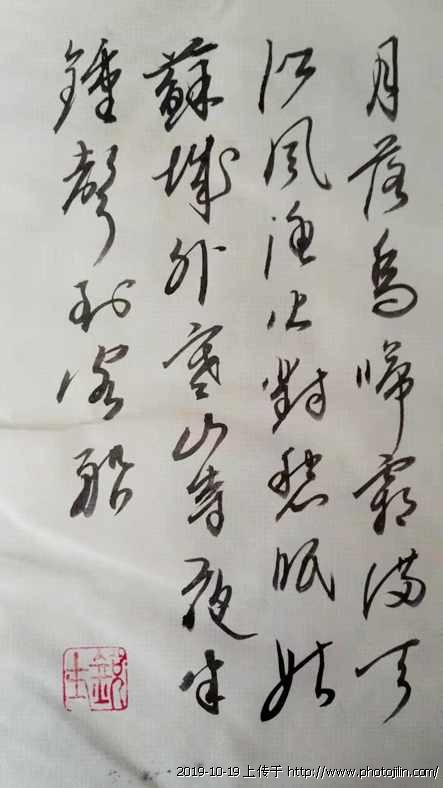 月落烏啼霜滿天
江風漁火對愁眠姑
蘇城外寒山寺夜半
鍾聲到客船
2019-10-19 上传于 http://www.photojlin.com/